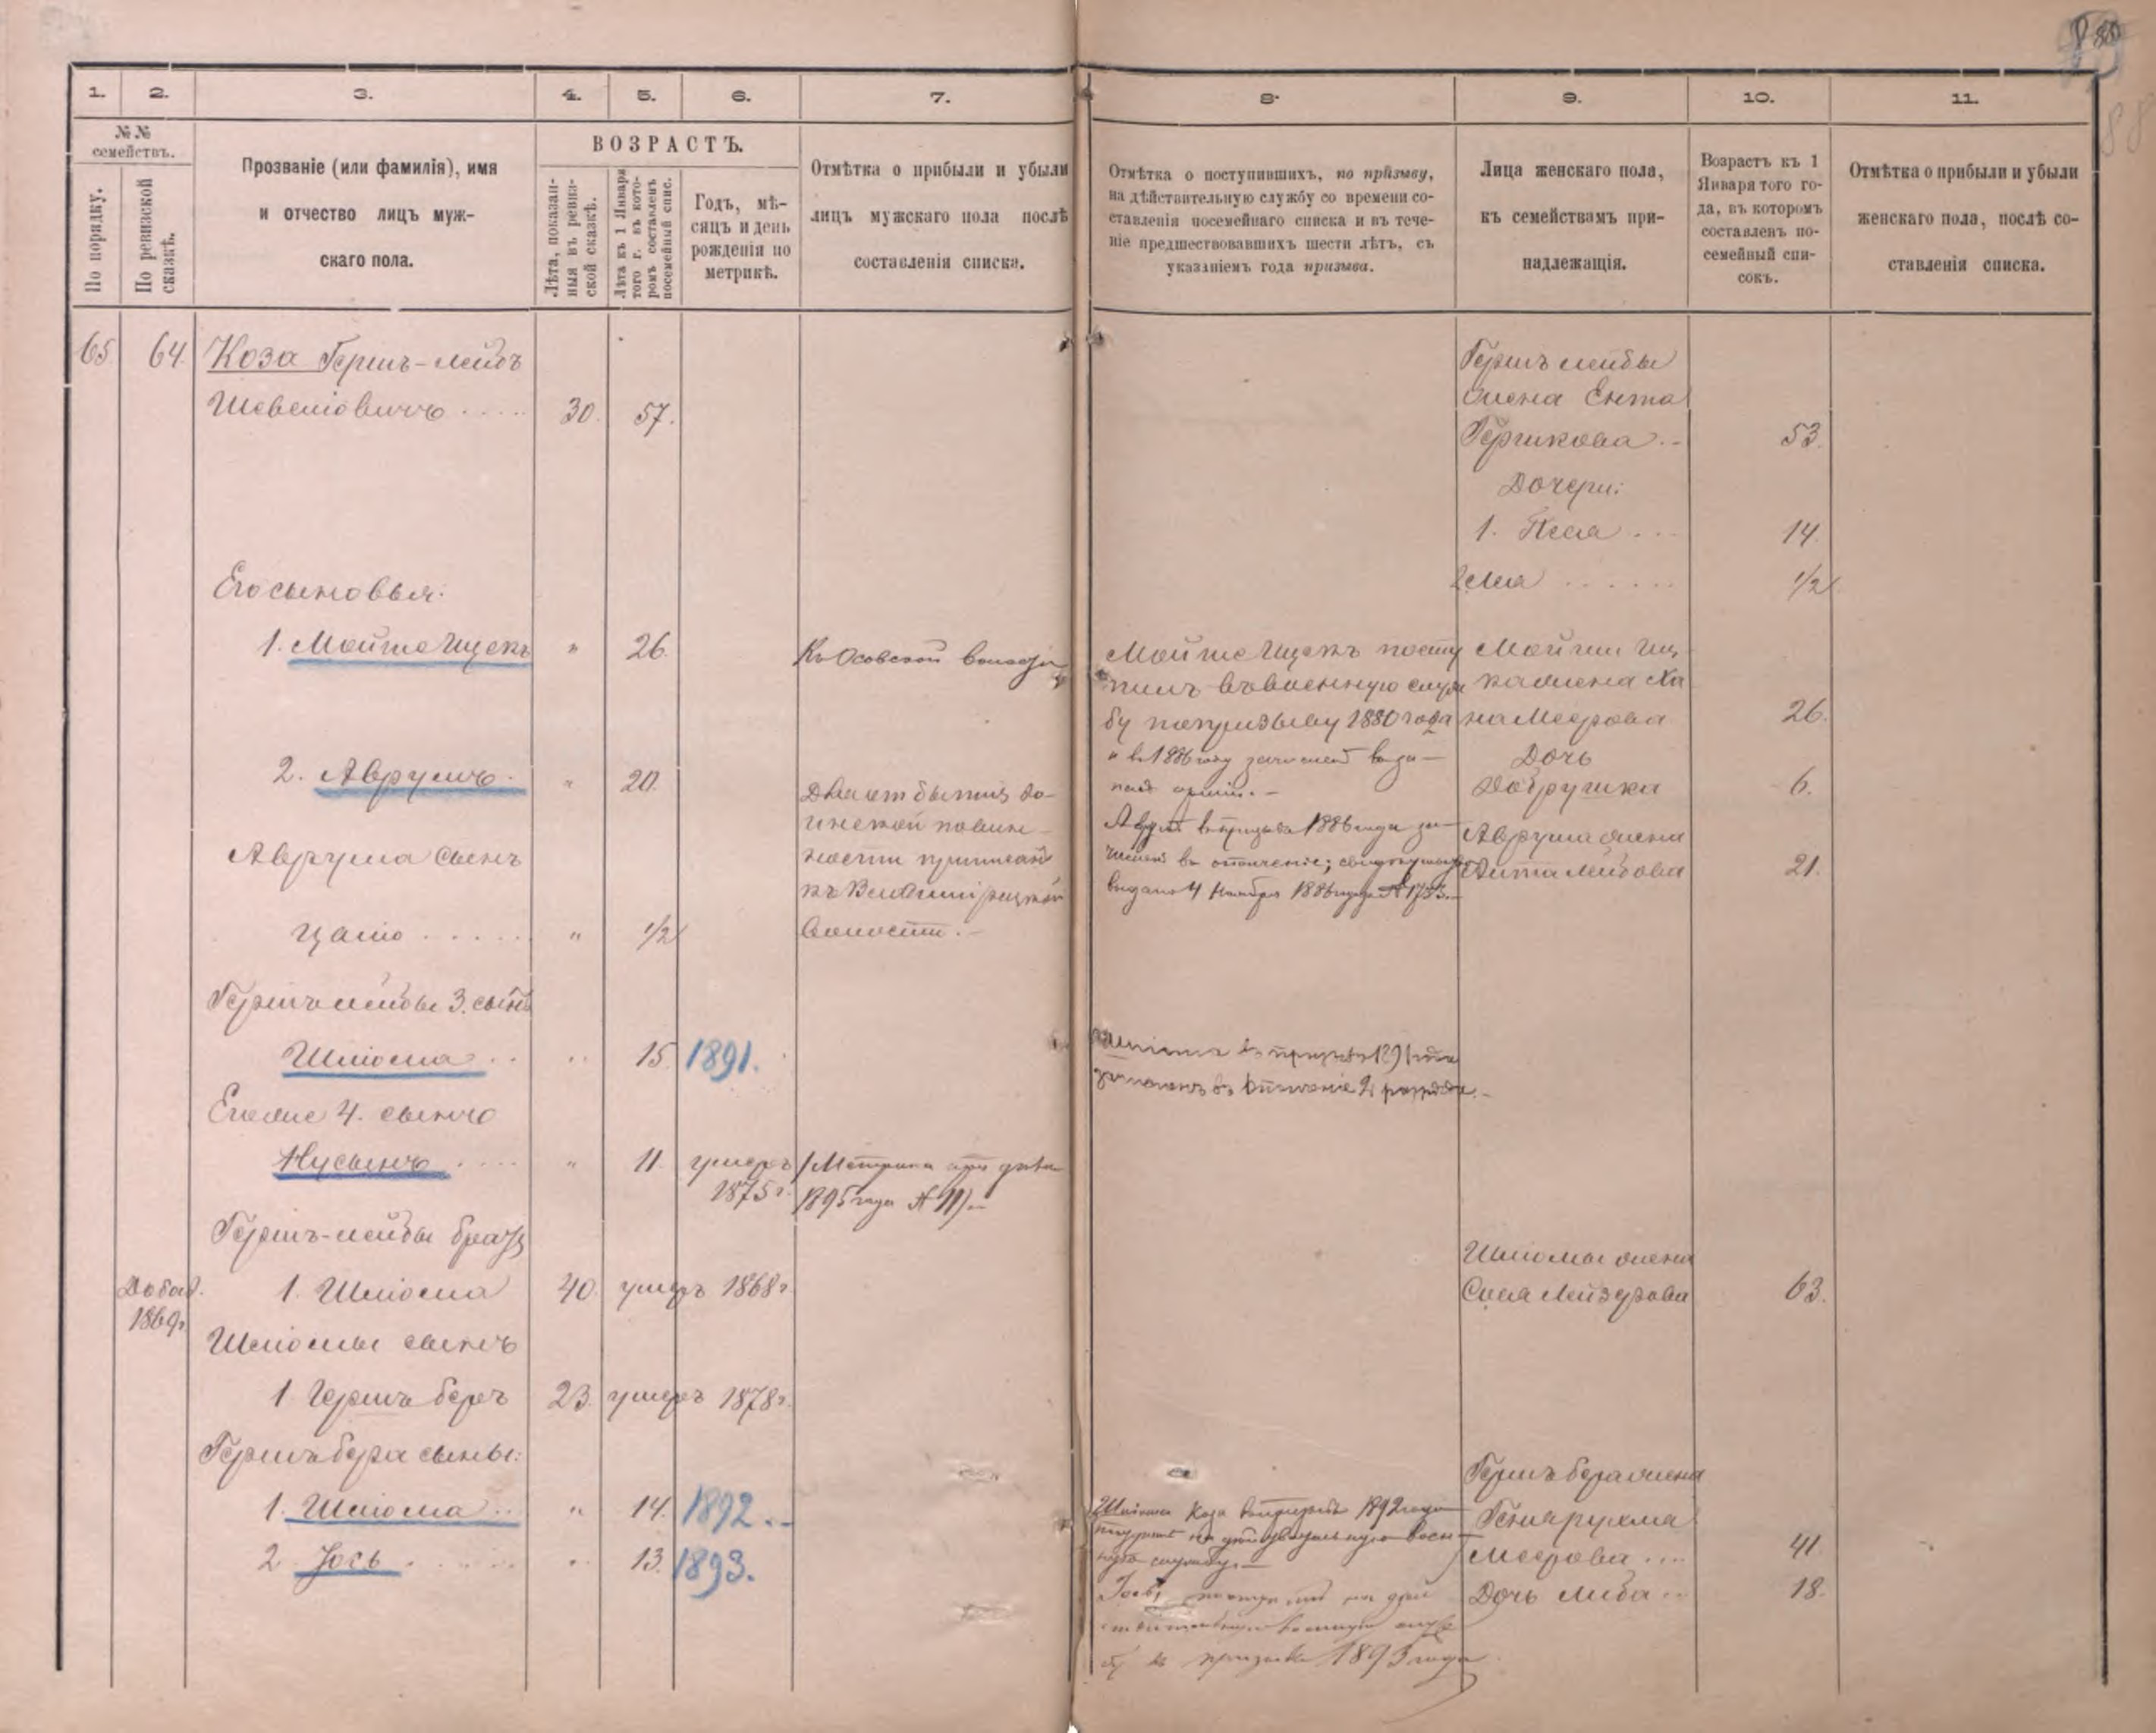 80
88
1. 2. 3. 4. 5. 6. 7. 8. 9. 10. 11.
№№ семействъ.
По порядку.
По ревизской сказкѣ.
Прозваніе (или фамилія), имя
и отчество лицъ муж-
скаго пола.
ВОЗРАСТЪ.
Лѣта, показан-
ныя въ ревиз-
ской сказкѣ.
Лѣта къ 1 Января
того г. въ кото-
ромъ составленъ
посемейный спис.
Годъ, мѣ-
сяцъ и день
рожденія по
метрикѣ.
Отмѣтка о прибыли и убыли
лицъ мужскаго пола послѣ
составленія списка.
Отмѣтка о поступившихъ, по призыву,
на дѣйствительную службу со времени со-
ставленія посемейнаго списка и въ тече-
ніе предшествовавшихъ шести лѣтъ, съ
указаніемъ года призыва.
Лица женскаго пола,
къ семействамъ при-
надлежащія.
Возрастъ къ 1
Января того го-
да, въ которомъ
составленъ по-
семейный спи-
сокъ.
Отмѣтка о прибыли и убыли
женскаго пола, послѣ со-
ставленія списка.
65 64 Коза Гершъ-лейбъ
30. 57.
Гершъ лейбы
жена Ента
Гершкова .. 53.
Дочери:
1. Песя ... 14.
2 Лея ...... 1/2
Его сыновья:
1. Мойше Ицекъ " 26.
Къ Осовской волости
Мойше Ицекъ посту
пилъ въ военную служ
бу по призыву 1880 года
и въ 1886 году зачисленъ въ за-
пасъ арміи. -
Мойши Иц
ка жена Ха
на Меерова 26.
Дочь
Добрушка 6.
2. Аврумъ. " 20.
Для отбытія во-
инской повин-
ности приписанъ
къ
волости. -
Аврумъ въ призывъ 1886 года за-
численъ въ ополченіе; свидѣтельство
выдано 4 Ноября 1886 года № 1733.
Аврума жена
Лейбова 21.
Аврума сынъ
..... " 1/2
Гершъ лейбы 3. сынъ
Шліома .. " 15. 1891.
Шліома въ призывъ 1891 года
зачисленъ въ ополченіе 2 разряда. -
Его же 4. сынъ
Нусынъ .... " 11. умеръ
1875 г.
(Метрика при дѣлѣ
1895 года № 11). -
Гершъ-лейбы братъ
Добав.
1869 г.
1. Шліома 40. умеръ 1868 г.
Шліомы жена
Сося Лейзерова 63.
Шліомы сынъ
1 Гершъ беръ 23. умеръ 1878 г.
Гершъ бера сыны:
1. Шліома .. " 14. 1892. -
2. Іось ...... " 13. 1893.
Шліома Коза въ призывъ 1892 года
поступилъ на дѣйствительную воен-
ную службу. -
Іось, поступилъ на дѣй
ствительную военную служ
бу въ призывъ 1893 года
Гершъ бера жена
Меерова ... 41.
Дочь Либа .. 18.